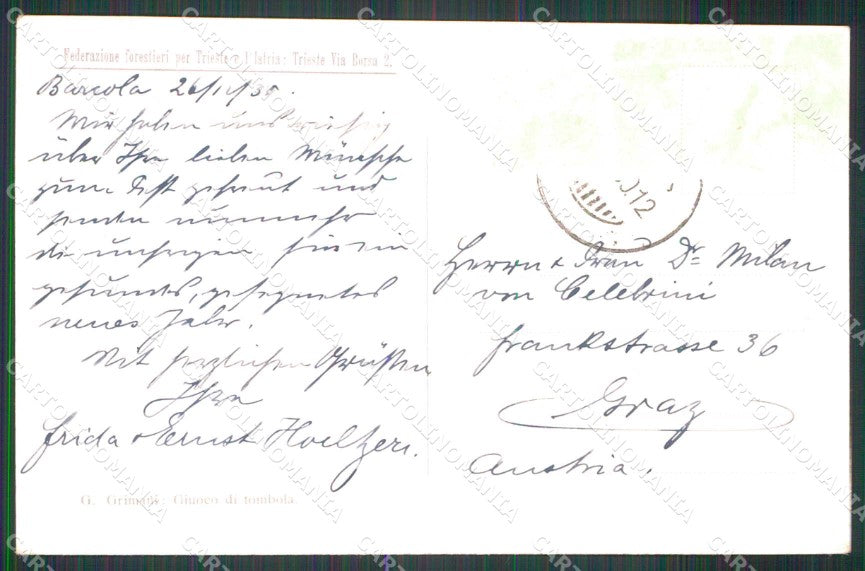 Federazione forestieri per Trieste e l'Istria: Trieste Via Borsa 2.
Barcola 26/ /35.
Wir haben uns riesig
über Ihre lieben Wünsche
zum Fest gefreut und
senden nunmehr
die unsrigen für ein
gesundes, gesegnetes
neues Jahr.
Mit herzlichen Grüßen
Ihre
Frida & Ernst Hoeltzer.
G. Grimani: Giuoco di tombola.
12
Herrn & Frau Dr Milan
von Celebrini
Frankstrasse 36
Graz
Austria.
CARTOLINOMANIA